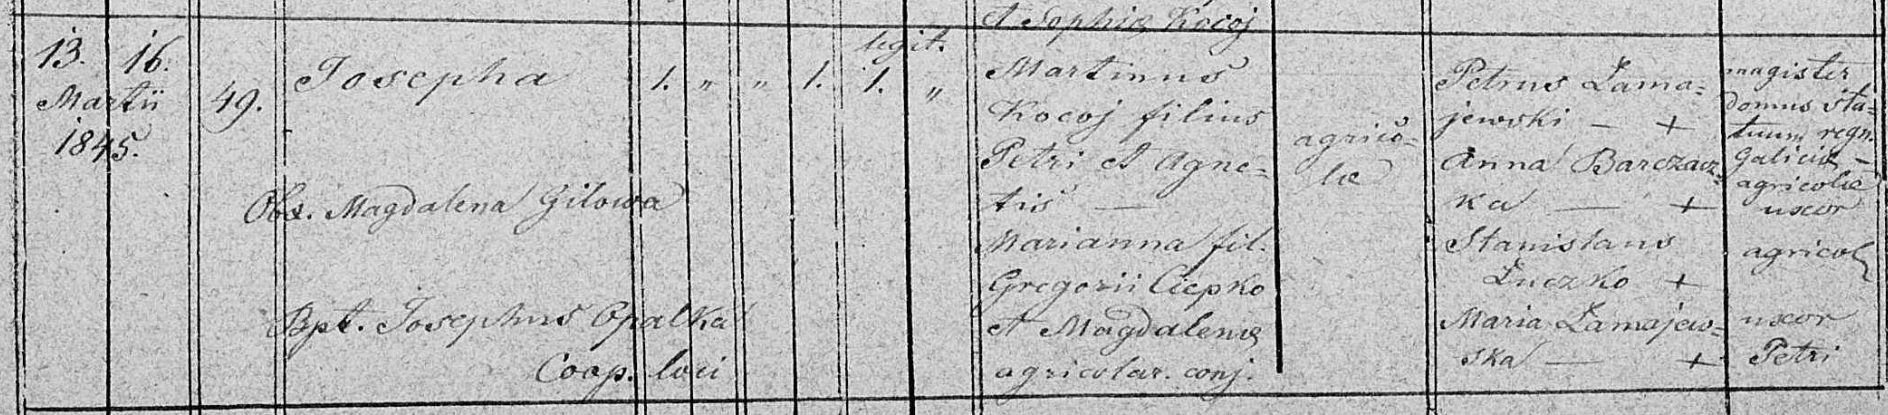 et Sophiæ Kocoj
13. 16.
Martii
1845.
49.
Josepha
1. " " 1. 1. "
legit.
Obs. Magdalena Gilowa
Bpt. Josephus Opalka
Coop. loci
Martinus
Kocoj filius
Petri et Agne=
tis —
Marianna fil.
Gregorii Ciepko
et Magdalenæ
agricolar. conj.
agrico=
læ
Petrus Łama=
jewski — +
Anna Barczacz=
ka — +
Stanislaus
Łuczko +
Maria Łamajew=
ska — +
magister
domus sta=
tuum regn.
Galiciæ —
agricolæ
uxor
agricol
uxor
Petri